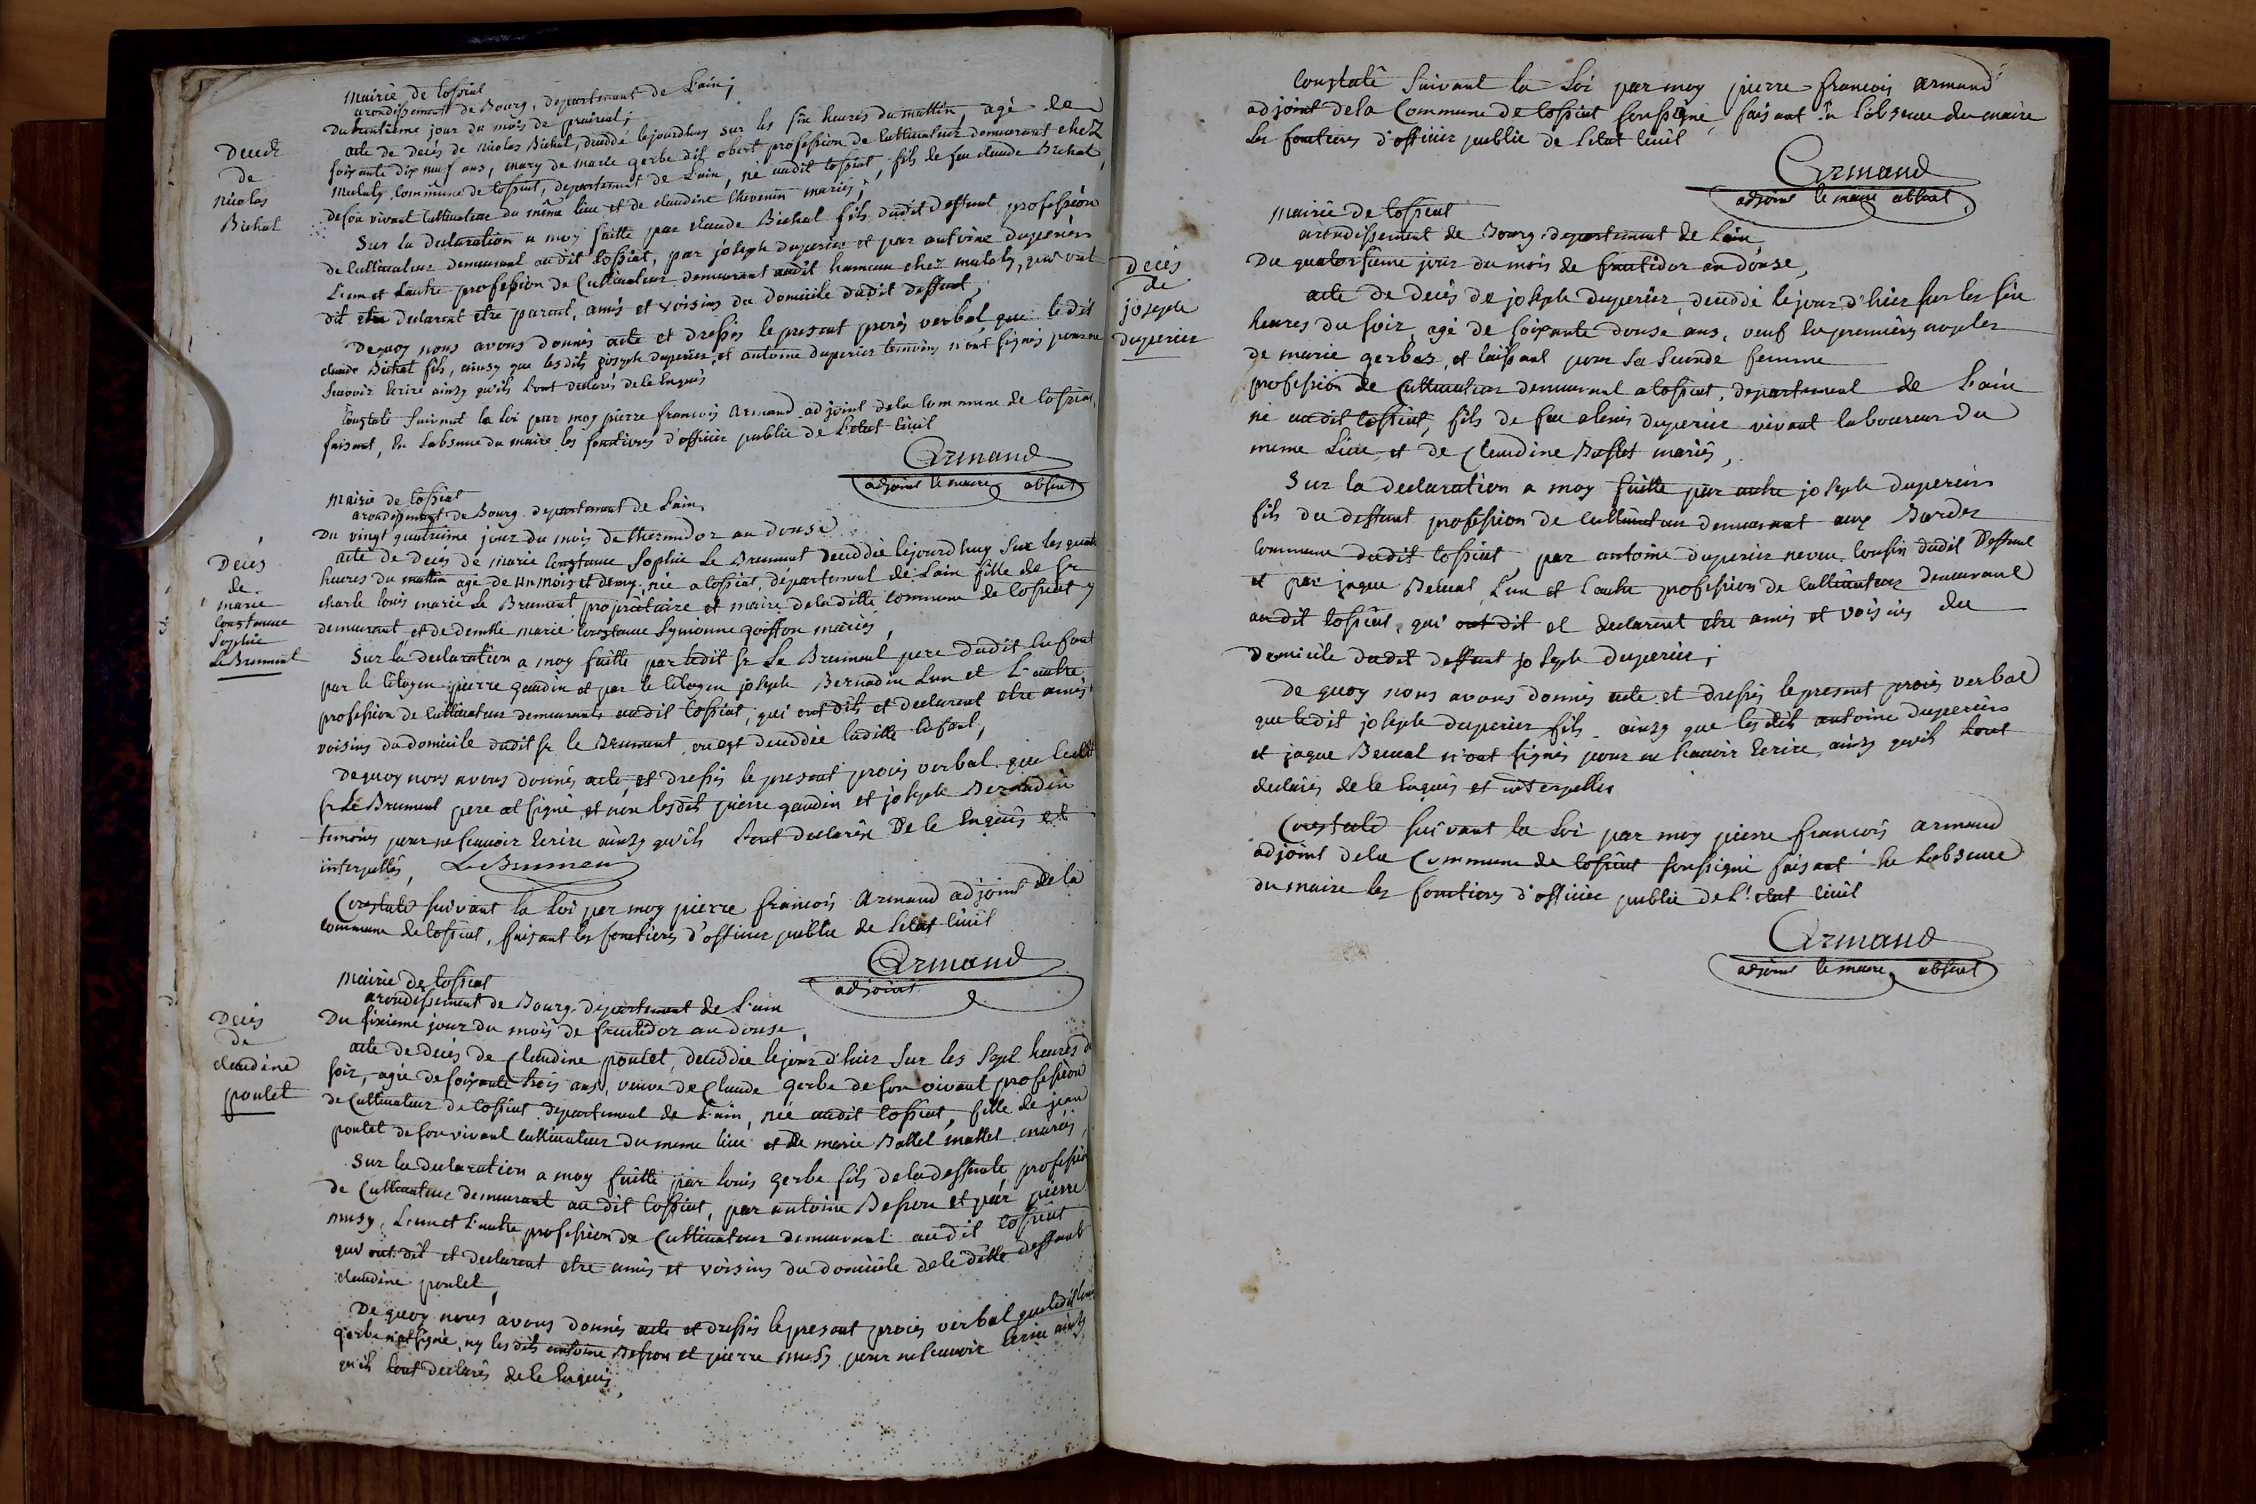 Mairie de Cossiat
arondissement de Bourg, departement de L'ain;
Du trentième jour du mois de prairial;
Deceds
de
nicolas
Bichat
acte de decès de nicolas Bichat, deceddé lejourdhuy sur les six heures du mattin, agé de
soixante dix neuf ans, mary de marie gerbe dit obert profession de Cultivateur demeurant chez
mulaty commune de Cossiat, departement de L'ain, né audit Cossiat, fils de feu claude Bichat,
de son vivant Cultivateur du même lieu et de claudine thevenin mariés,
Sur la declaration a moy faitte par claude Bichat fils dudit deffunt profession
de Cultivateur demeurant audit Cossiat, par joseph duperier et par antoine duperier
L'un et Lautre profession de Cultivateur demeurant audit hameau chez mulaty, qui ont
dit et declarent etre parent, amis et voisins du domicile dudit deffunt,
De quoy nous avons donnés acte et dressés le present procès verbal que le dit
claude Bichat fils, ainsy que lesdits joseph duperier et antoine duperier temoins n'ont signés pour ne
scavoir Ecrire ainsy qu'ils Lont declarés de Ce Enquis
Constaté suivant la Loi par moy pierre francois armand adjoint dela Commune de Cossiat,
faisant, En Labsence du maire les fonctions d'officier public de L'etat Civil
Armand
adjoint le maire absent
Mairie de Cossiat
arondissement de Bourg departement de Lain,
Du vingt quatrieme jour du mois de thermidor an douse
Decès
de
marie
Constance
Sophie
Le Brument
acte de decès de marie Constance Sophie Le Brument deceddée lejourdhuy sur les quatre
heures du mattin agé de un mois et demy, née a Cossiat, departement de Lain fille de Sr
charle louis marie Le Brument proprietaire et maire de la ditte Commune de Cossiat y
demeurant et de demlle marie Constance Symonne goiffon mariés,
Sur la declaration a moy faitte par ledit Sr Le Brument pere dudit Enfant
par le Citoyen pierre gaudin et par le Citoyen joseph Bernadin Lun et L'autre
profession de Cultivateur demeurants audit Cossiat, qui ont dits et declarent etre amis
voisins du domicile dudit Sr le Brument, ou est deceddée laditte Enfant,
De quoy nous avons donnés acte, et dressés le present procès verbal que ledit
Sr Le Brument pere at signé, et non lesdits pierre gaudin et joseph Bernadin
temoins pour ne scavoir Ecrire ainsy qu'ils Lont declarés De Ce Enquis et
interpellés, LeBrument
Constaté suivant la Loi par moy pierre francois Armand adjoint de la
Commune de Cossiat, faisant les fonctions d'officier public de Letat Civil
Armand
adjoint
Mairie de Cossiat
arondissement de Bourg departement de L'ain
Du sixieme jour du mois de fructidor an douse,
Decès
de
claudine
poulet
acte de decès de Claudine poulet, deceddée lejour d'hier sur les Sept heures du
soir, agée de soixante trois ans, veuve de Claude Gerbe de son vivant profession
de Cultivateur de Cossiat departement de L'ain, née audit Cossiat, fille de jean
poulet de son vivant Cultivateur du meme lieu et de marie Ballet mallet mariés,
Sur la declaration a moy faitte par louis Gerbe fils de la deffunte, profession
de Cultivateur demeurant au dit Cossiat, par antoine Besson et par pierre
musy, L'un et L'autre profession de Cultivateur demeurant audit Cossiat
qui ont dit et declarent etre amis et voisins du domicile de la ditte deffunte
claudine poulet,
De quoy nous avons donnés acte et dressés le present procès verbal que ledit louis
gerbe n'at signé, ny les dits antoine Besson et pierre musy pour ne scavoir Ecrire ainsy
qu'ils Lont declarés de Ce Enquis,
Constaté suivant la Loi par moy pierre francois armand
adjoint de la Commune de Cossiat soussigné, faisant En L'absence du maire
Les fonctions d'officier public de Letat Civil
Armand
adjoint le maire absent
Mairie de Cossiat
arondissement de Bourg departement de Lain,
Du quatorsieme jour du mois de fructidor an douse,
Decès
de
joseph
duperier
acte de decès de joseph duperier, deceddé lejour d'hier sur les six
heures du soir, agé de soixante douse ans, veuf En premieres noples
de marie gerbaz, et laissant pour sa Seconde femme
profession de Cultivateur demeurant a Cossiat, departement de Lain
né audit Cossiat, fils de feu alexis duperier vivant laboureur du
meme Lieu et de Claudine Buffet mariés,
Sur la declaration a moy faitte par autre joseph duperier
fils du deffunt profession de Cultivateur demeurant aux Bordes
Commune dudit Cossiat, par antoine duperier neveu Cousin dudit Deffunt
et par jaque Beccat, L'un et L'autre profession de Cultivateur demeurant
audit Cossiat, qui ont dit et declarent etre amis et voisins du
domicile dudit deffunt joseph duperier;
De quoy nous avons donnés acte et dressés le present procès verbal
que ledit joseph duperier fils ainsy que lesdits antoine duperier
et jaque Beccat n'ont signés pour ne scavoir Ecrire ainsy qu'ils Lont
declarés de Ce Enquis et interpellés
Constaté suivant la Loi par moy pierre francois armand
adjoint dela Commune de Cossiat soussigné faisant En Labsence
du maire les fonctions d'officier public de L'etat Civil
Armand
adjoint le maire absent